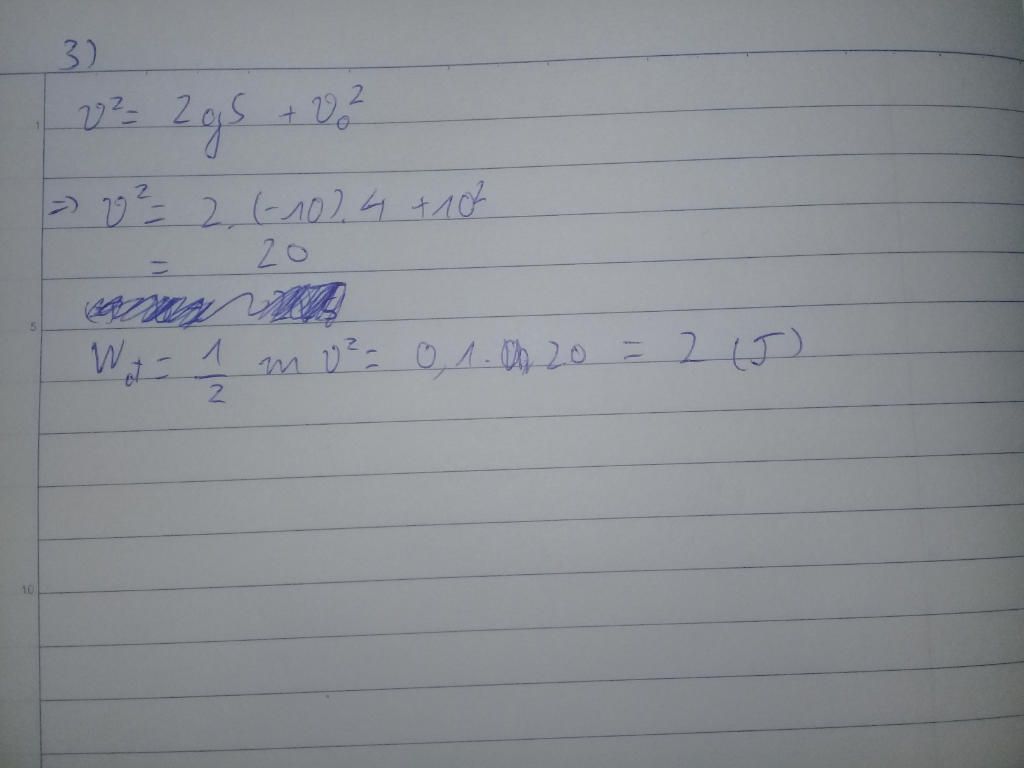 3)
v² = 2gS + v₀²
1
=> v² = 2.(-10).4 + 10²
= 20
5
Wđt = 1/2 m v² = 0,1. 20 = 2 (J)
10